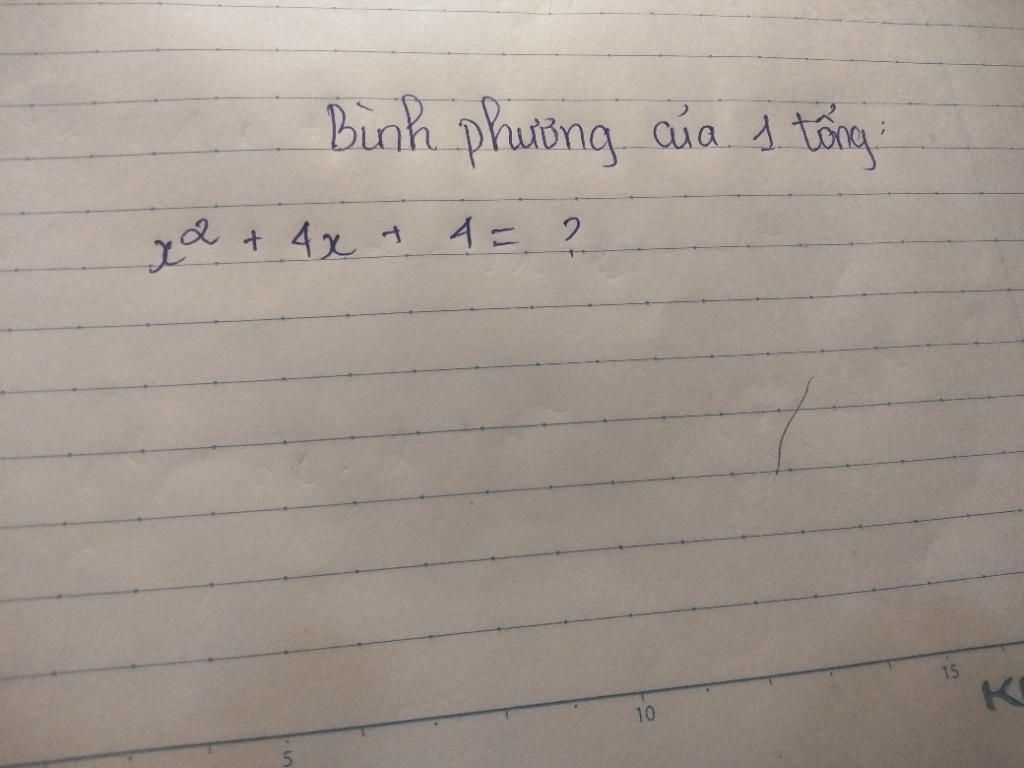 Bình phương của 1 tổng:
x² + 4x + 4 = ?
5 10 15